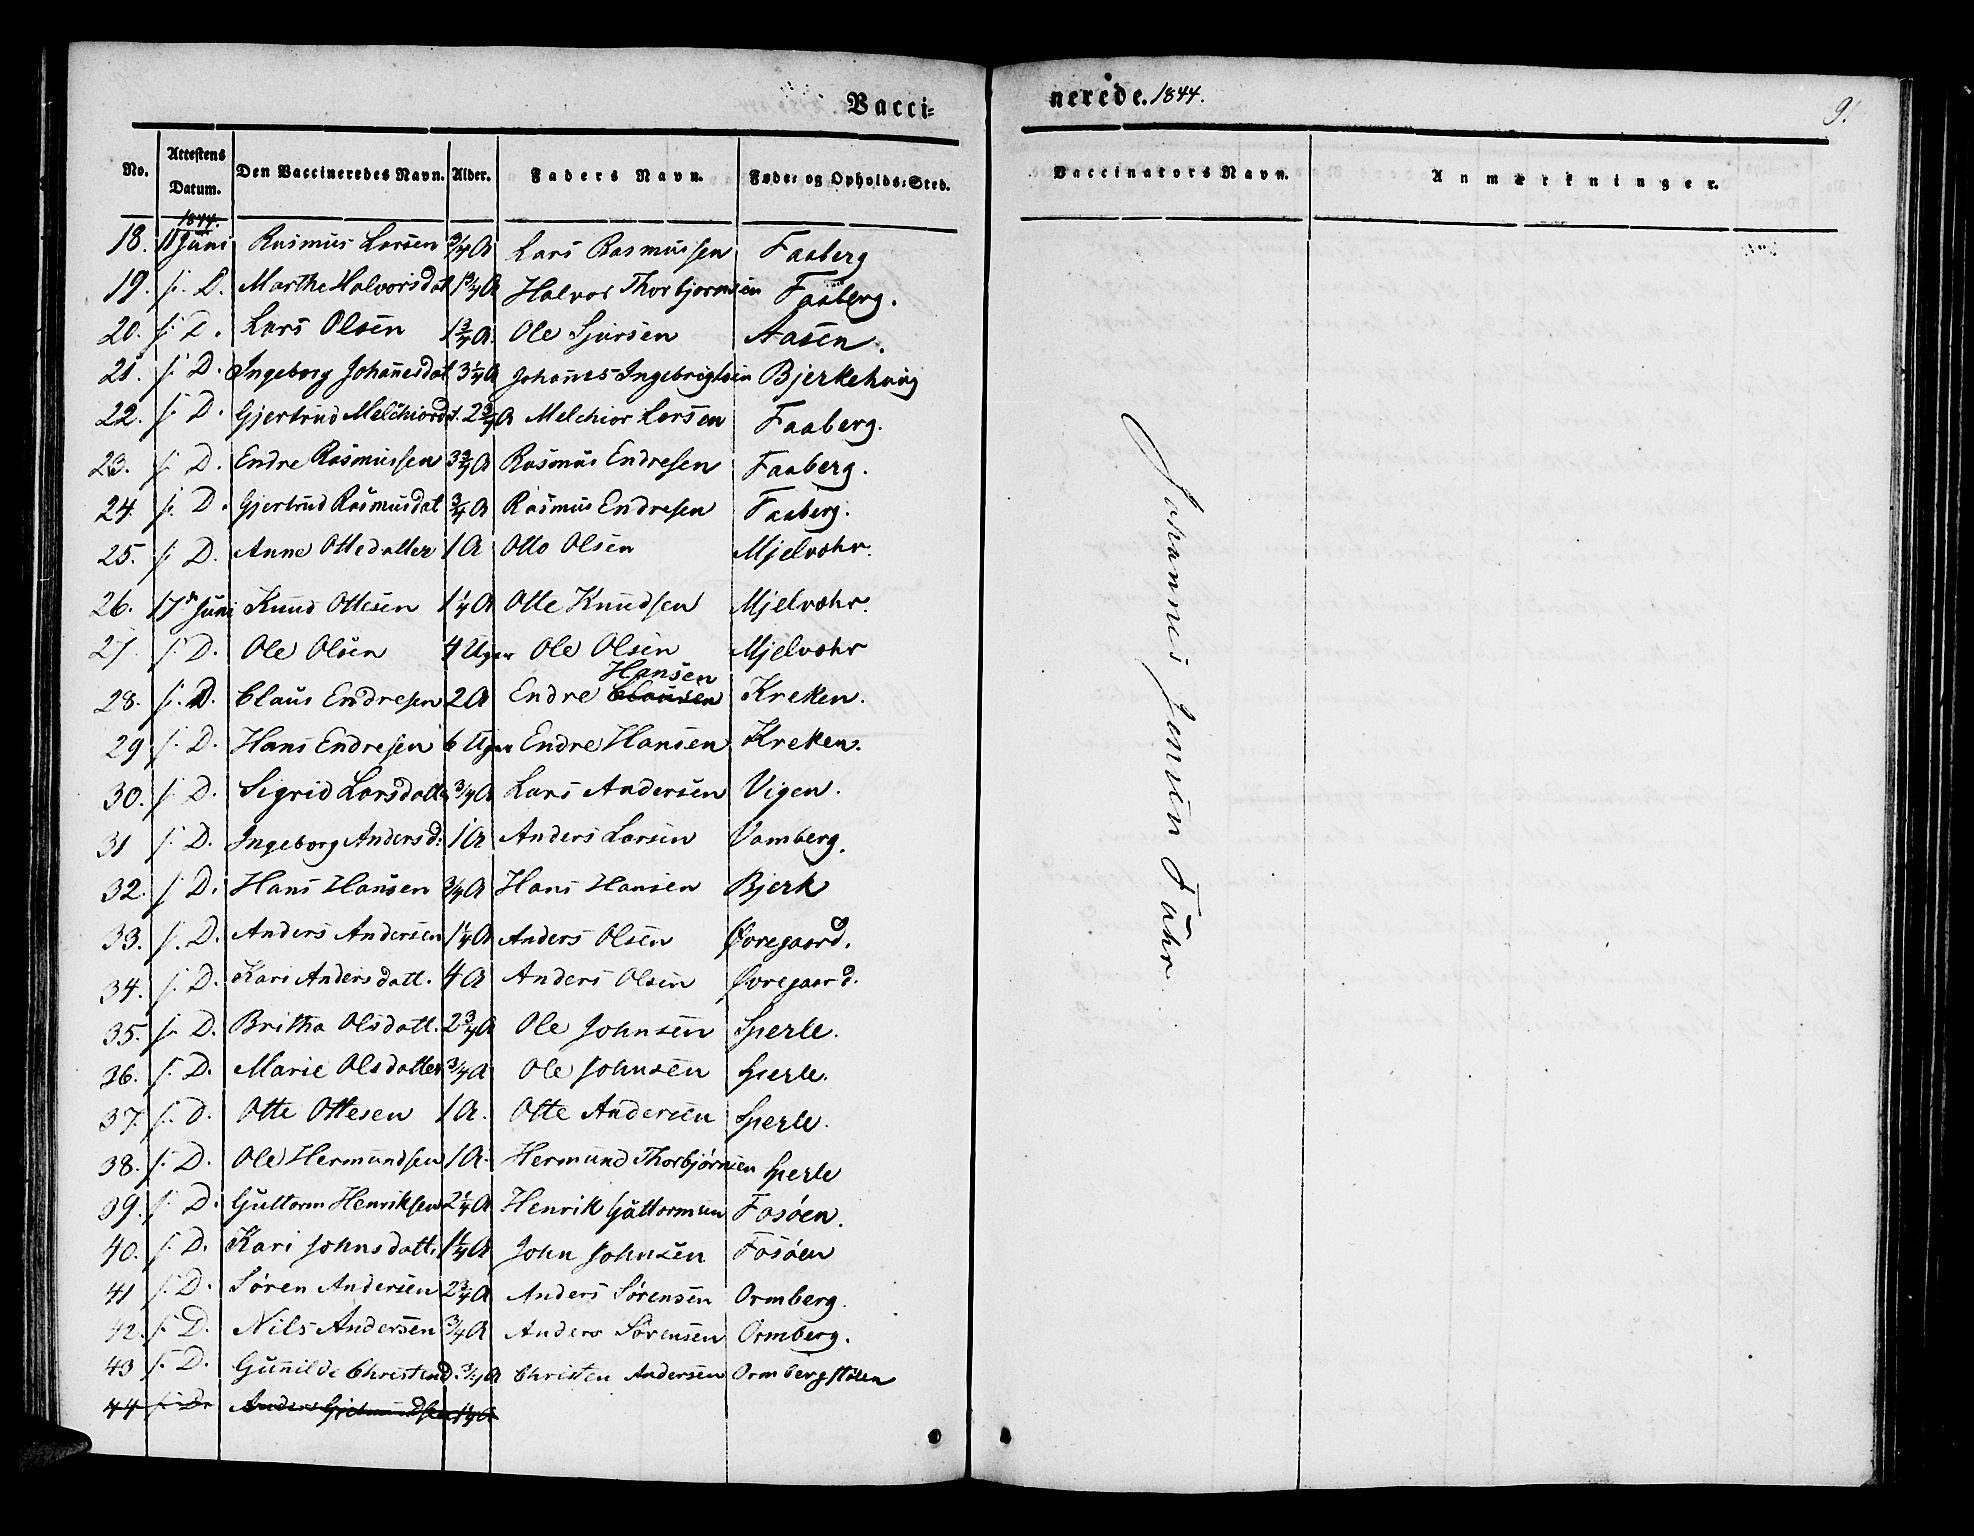 Vacci=
nerede. 1844.
9.
No. Attestens Datum. Den Vaccineredes Navn. Alder. Faders Navn. Føde= og Opholds=Sted. Vaccinators Navn. Anmærkninger.
1844.
18. 11 Juni Rasmus Larsen 3/4 A Lars Rasmussen Faaberg
19. s. D. Marthe Halvorsdat 1 3/4 A Halvor Thorbjørnsen Faaberg.
20. s. D. Lars Olsen 1 3/4 A. Ole Sjursen Aasen.
21. s. D. Ingeborg Johañesdat 3 1/4 A Johañes Ingebrigtsen Bjerkehoug
22. s. D. Gjertrud Melchiord. 2 3/4 A Melchior Larsen Faaberg.
23. s. D. Endre Rasmussen 3 3/4 A Rasmus Endresen Faaberg.
24. s. D. Gjertrud Rasmusdat 3/4 A Rasmus Endresen Faaberg.
25. s. D. Anne Ottedatter 1 A Otto Olsen Mjelvohr.
26. 17de Juni Knud Ottesen 1 1/4 A Otte Knudsen Mjelvohr.
27. s. D. Ole Olsen 4 Uger Ole Olsen Mjelvohr
Hansen
28. s. D. Claus Endresen 2 A Endre Clausen Kreken.
29 s. D. Hans Endresen 6 Uger Endre Hansen Kreken.
30. s. D. Sigrid Larsdatte 3/4 A Lars Andersen Vigen.
31 s. D. Ingeborg Andersd: 1 A Anders Larsen Vamberg.
32. s. D. Hans Hansen 3/4 A Hans Hansen Bjerk
33. s. D. Anders Andersen 1 1/4 A Anders Olsen Øvregaard.
34. s. D. Kari Andersdatt. 4 A Anders Olsen Øvregaard.
35. s. D. Britha Olsdatt. 2 3/4 A Ole Johnsen Sperle.
36. s. D. Marie Olsdatter 3/4 A Ole Johnsen Sperle.
37. s. D. Otte Ottesen 1 A. Otte Andersen Sperle.
38. s. D. Ole Hermundsen 1 A. Hermund Thorbjørnsen Sperle
39. s. D. Guttorm Henriksen 2 1/4 A Henrik Guttormsen Fosøen.
40. s. D. Kari Johnsdatt. 1 1/4 A John Johnsen Fosøen
41 s. D. Søren Andersen 2 3/4 A Anders Sørensen Ormberg.
42. s. D. Nils Andersen 3/4 A Anders Sørensen Ormberg.
43 s. D. Guñilde Christend. 3/4 A Christen Andersen Ormbergstølen
44 s. D. Anders 1 1/4 A
Johannes Jensen